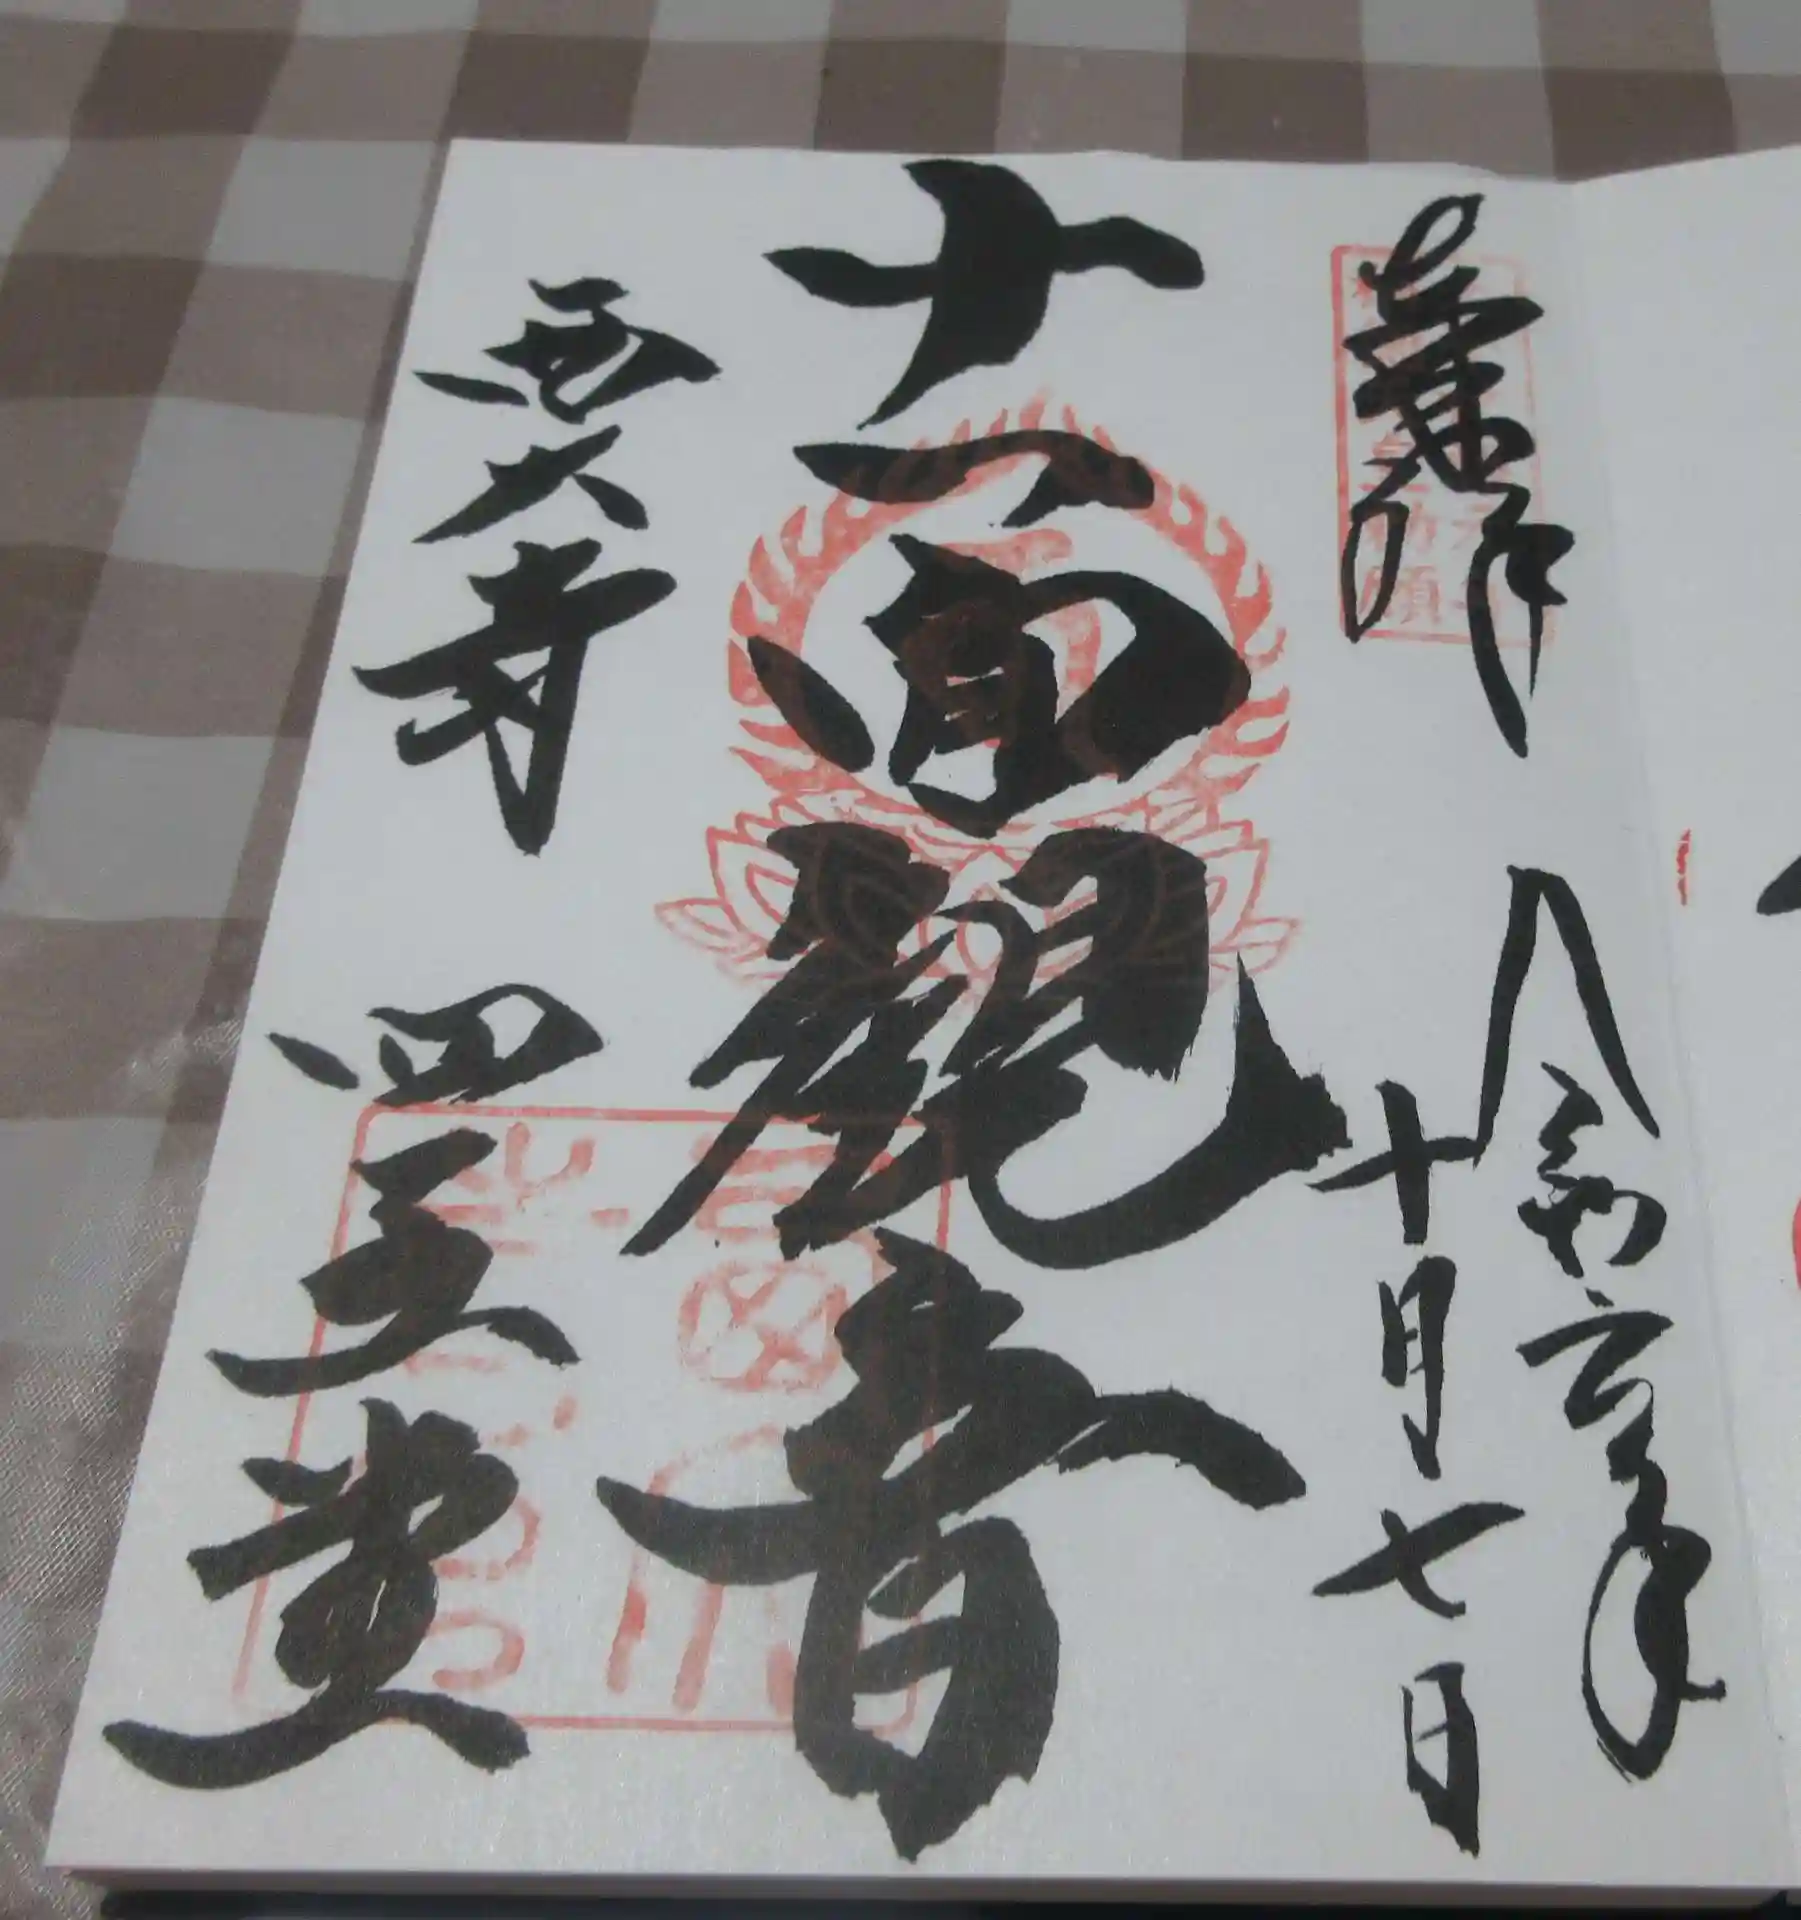 奉拝
令和六年
十月七日
十一面觀音
西大寺 四王堂